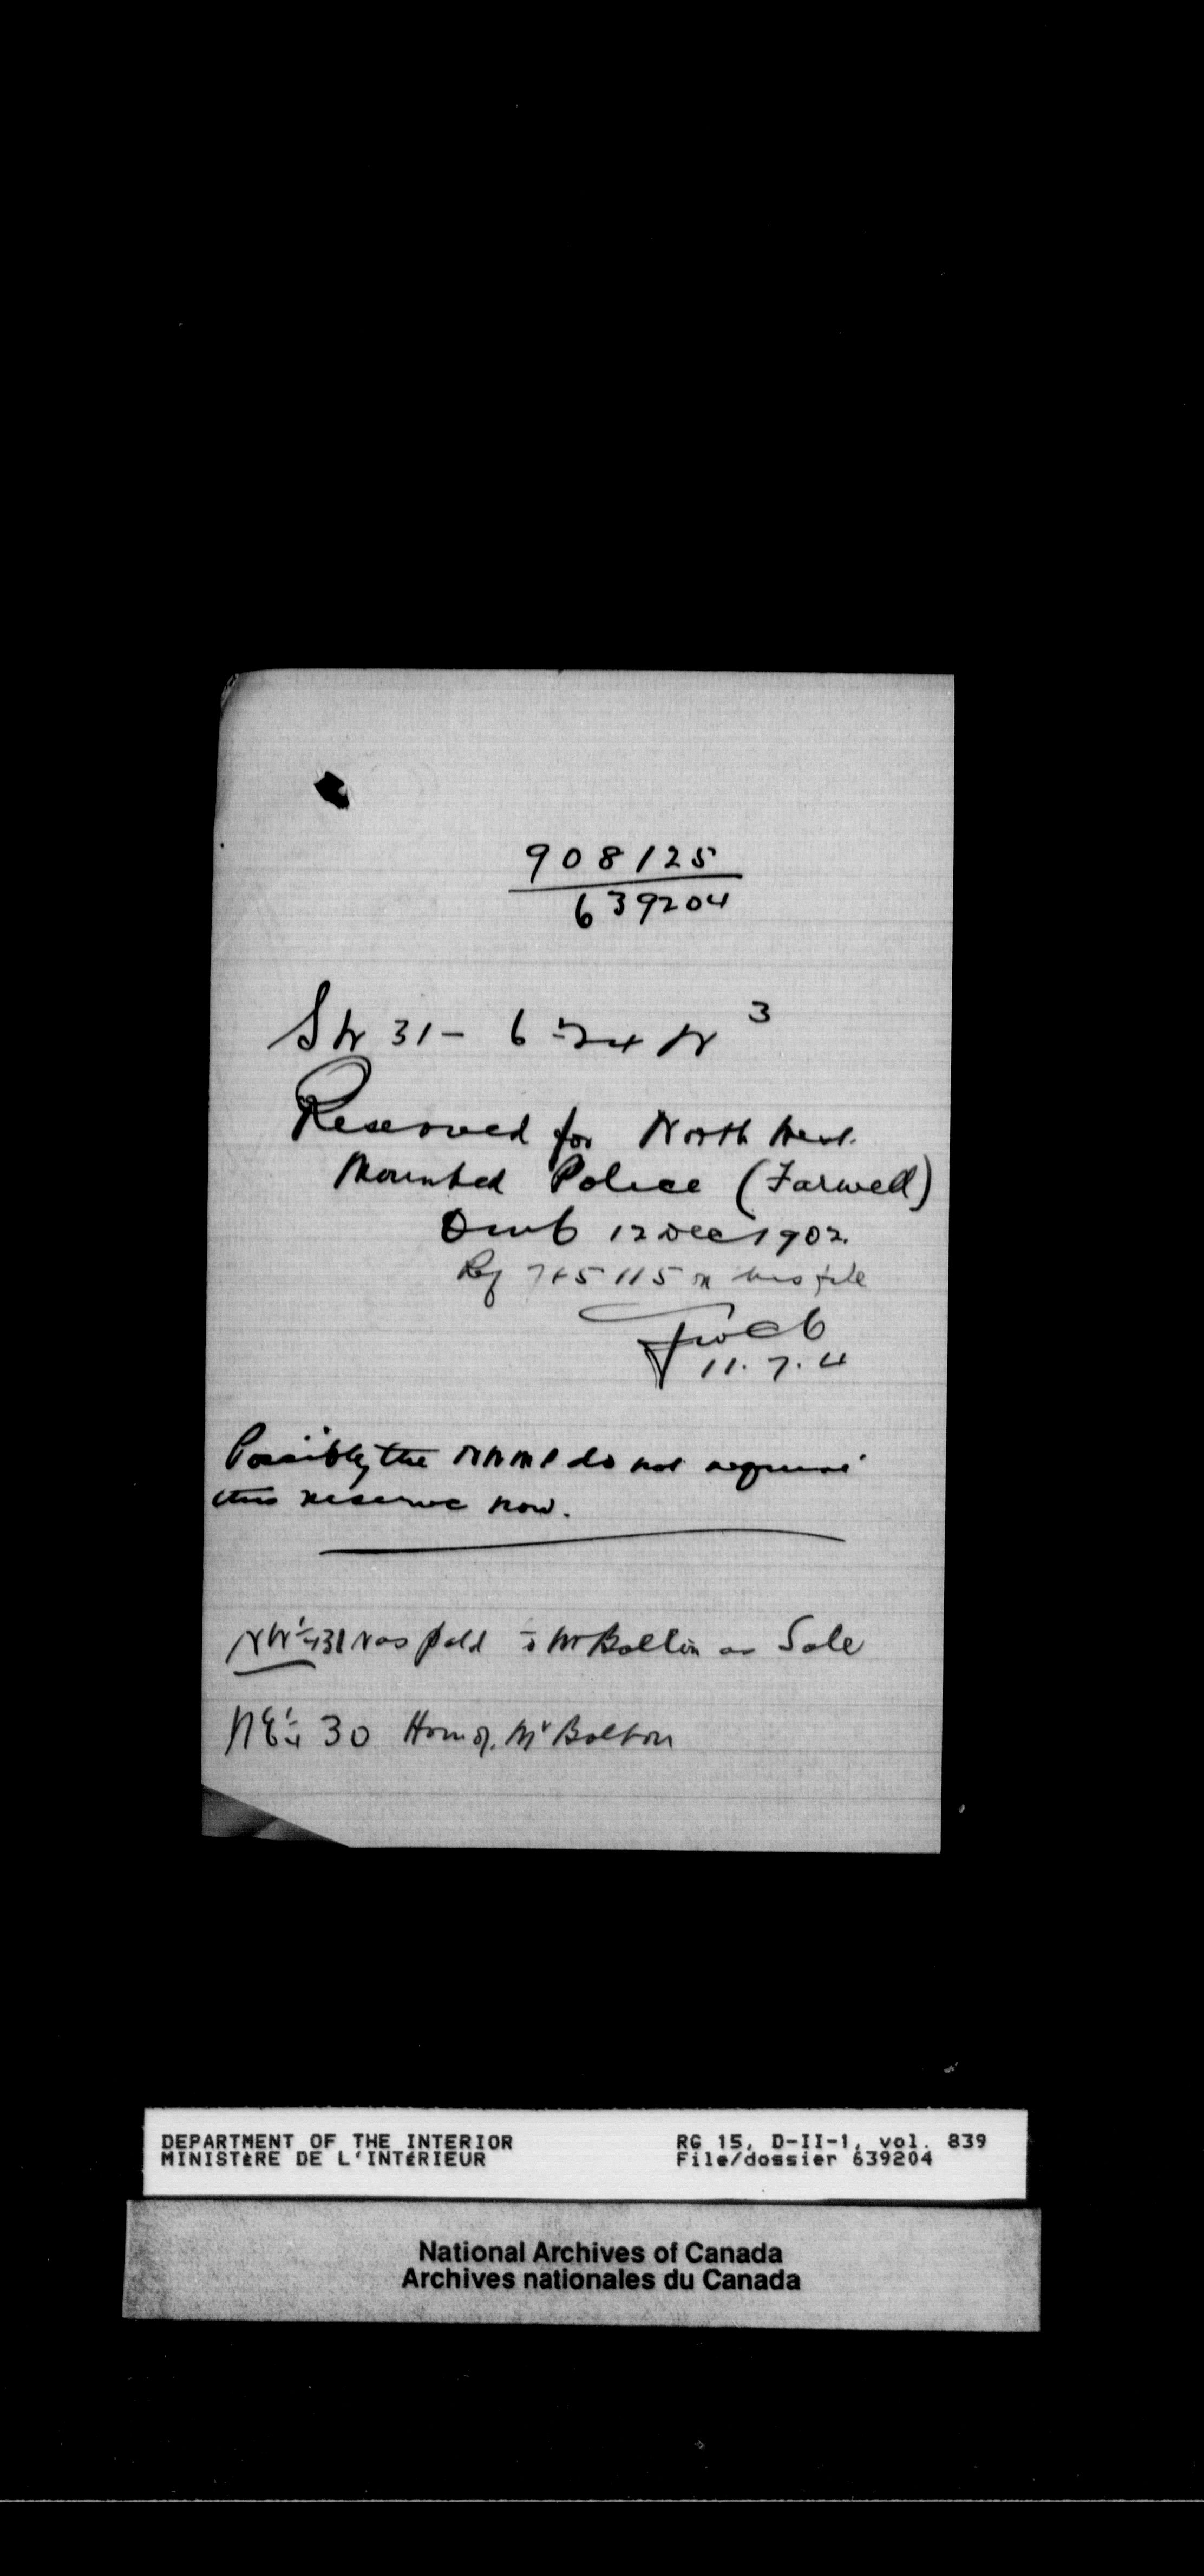 908125
639204
SW 31 - 6 - 24 W 3
Reserved for North West
Mounted Police (Farwell)
12 Dec 1902.
Ref 115 on this file
11.7.4
Possibly the NWMP do not require
this reserve now.
NW¼ 31 was sold to Mr Bolton as Sale
NE¼ 30 Mr Bolton
DEPARTMENT OF THE INTERIOR
MINISTÈRE DE L'INTÉRIEUR
RG 15, D-II-1, vol. 839
File/dossier 639204
National Archives of Canada
Archives nationales du Canada